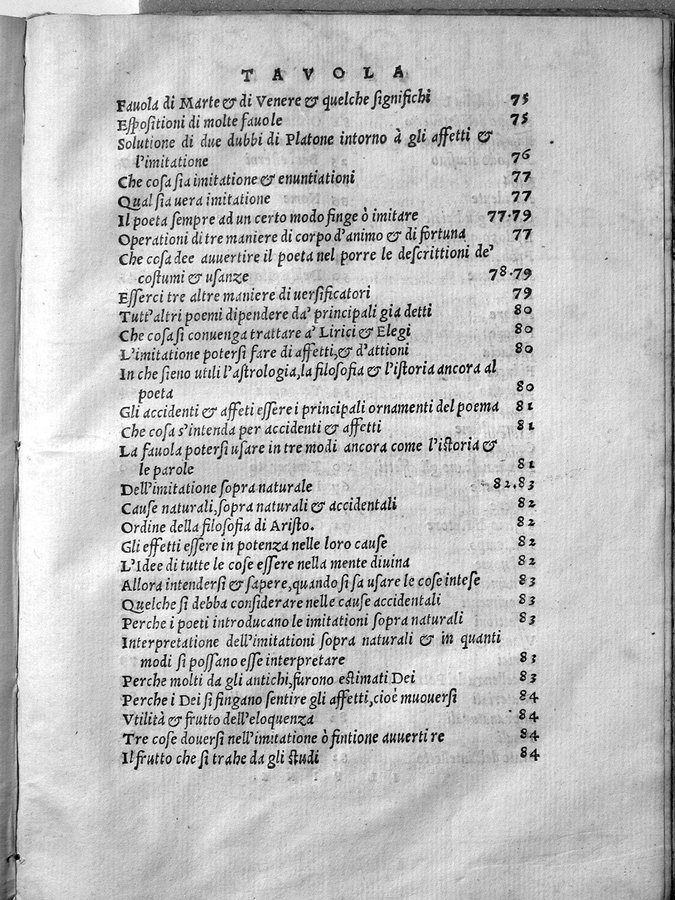 TAVOLA
Fauola di Marte & di Venere & quelche significhi 75
Espositioni di molte fauole 75
Solutione di due dubbi di Platone intorno à gli affetti &
l'imitatione 76
Che cosa sia imitatione & enuntiationi 77
Qual sia uera imitatione 77
Il poeta sempre ad un certo modo finge ò imitare 77.79
Operationi di tre maniere di corpo d'animo & di fortuna 77
Che cosa dee auuertire il poeta nel porre le descrittioni de'
costumi & usanze 78.79
Esserci tre altre maniere di uersificatori 79
Tutt'altri poemi dipendere da' principali gia detti 80
Che cosa si conuenga trattare a' Lirici & Elegi 80
L'imitatione potersi fare di affetti,& d'attioni 80
In che sieno utili l'astrologia,la filosofia & l'istoria ancora al
poeta 80
Gli accidenti & affeti essere i principali ornamenti del poema 81
Che cosa s'intenda per accidenti & affetti 81
La fauola potersi usare in tre modi ancora come l'istoria &
le parole 81
Dell'imitatione sopra naturale 82.83
Cause naturali,sopra naturali & accidentali 82
Ordine della filosofia di Aristo. 82
Gli effetti essere in potenza nelle loro cause 82
L'Idee di tutte le cose essere nella mente diuina 82
Allora intendersi & sapere,quando si sa usare le cose intese 83
Quelche si debba considerare nelle cause accidentali 83
Perche i poeti introducano le imitationi sopra naturali 83
Interpretatione dell'imitationi sopra naturali & in quanti
modi si possano esse interpretare 83
Perche molti da gli antichi,furono estimati Dei 83
Perche i Dei si fingano sentire gli affetti,cioè muouersi 84
Vtilità & frutto dell'eloquenza 84
Tre cose douersi nell'imitatione ò fintione auuertire 84
Il frutto che si trahe da gli studi 84